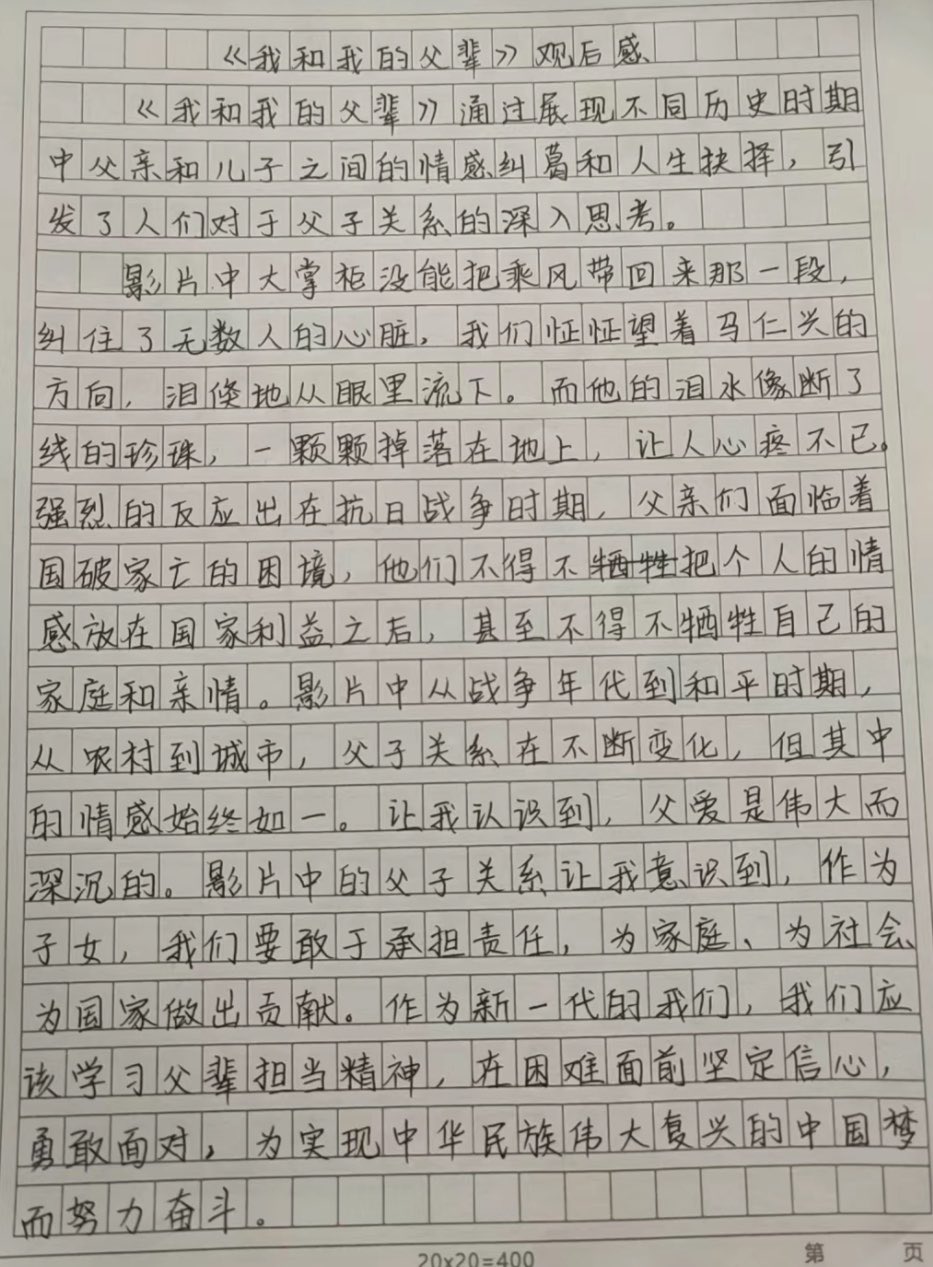 《我和我的父辈》观后感
《我和我的父辈》通过展现不同历史时期
中父亲和儿子之间的情感纠葛和人生抉择，引
发了人们对于父子关系的深入思考。
影片中大掌柜没能把乘风带回来那一段，
纠住了无数人的心脏，我们怔怔望着马仁兴的
方向，泪倏地从眼里流下。而他的泪水像断了
线的珍珠，一颗颗掉落在地上，让人心疼不已。
强烈的反应出在抗日战争时期，父亲们面临着
国破家亡的困境，他们不得不牺牲把个人的情
感放在国家利益之后，甚至不得不牺牲自己的
家庭和亲情。影片中从战争年代到和平时期，
从农村到城市，父子关系在不断变化，但其中
的情感始终如一。让我认识到，父爱是伟大而
深沉的。影片中的父子关系让我意识到，作为
子女，我们要敢于承担责任，为家庭、为社会、
为国家做出贡献。作为新一代的我们，我们应
该学习父辈担当精神，在困难面前坚定信心，
勇敢面对，为实现中华民族伟大复兴的中国梦
而努力奋斗。
20×20=400
第 页